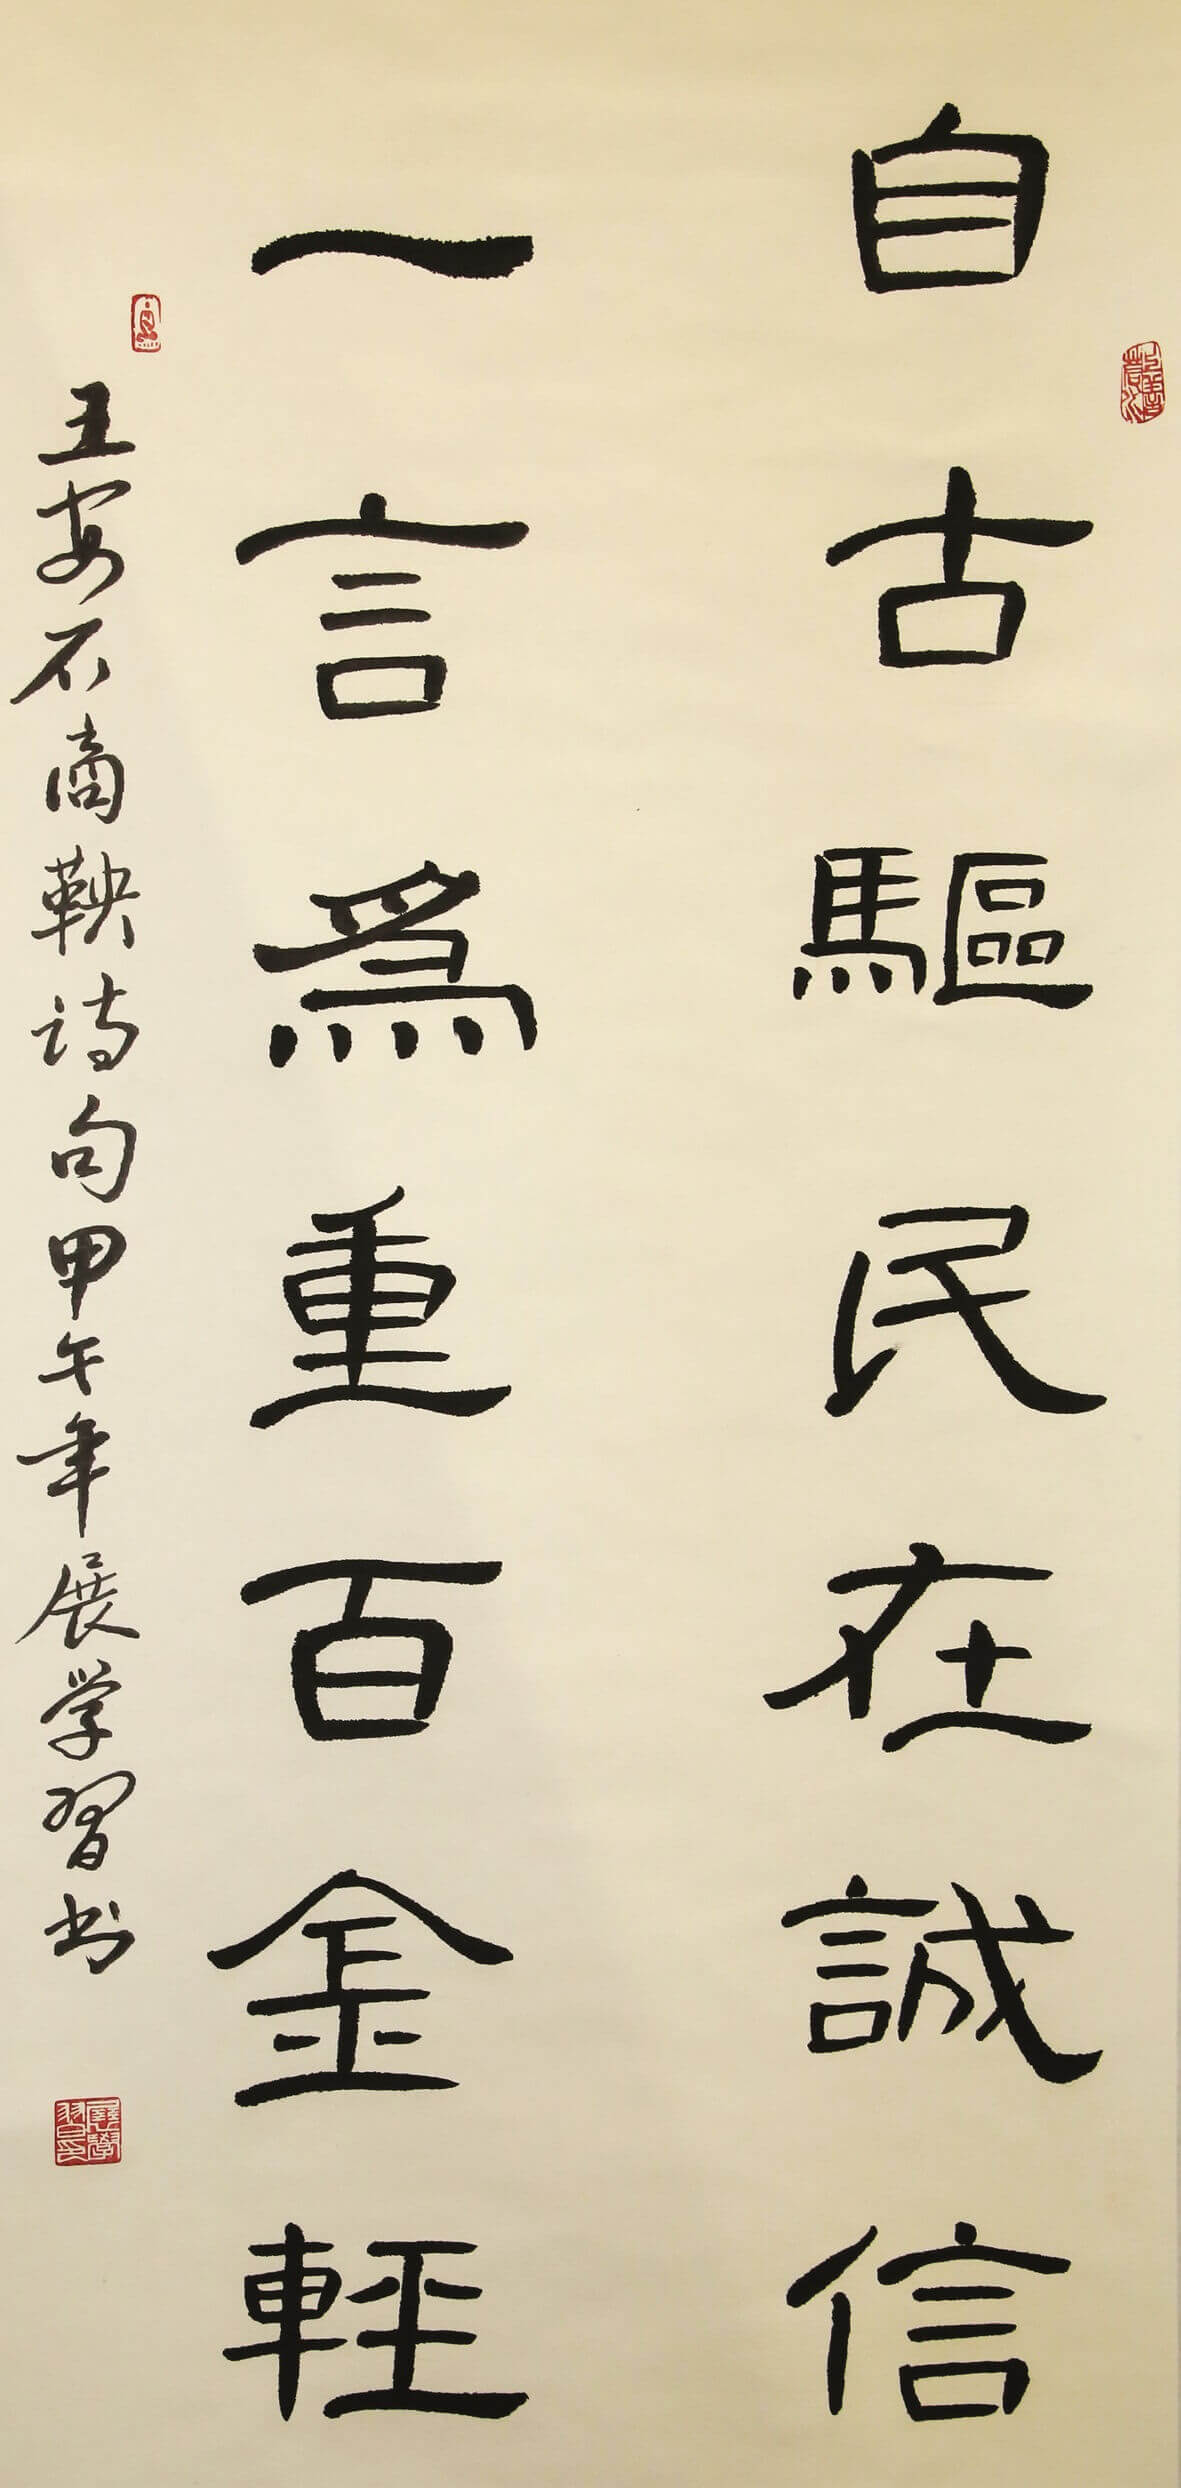 自古驅民在誠信
一言爲重百金輕
王安石商鞅诗句甲午年展学習书